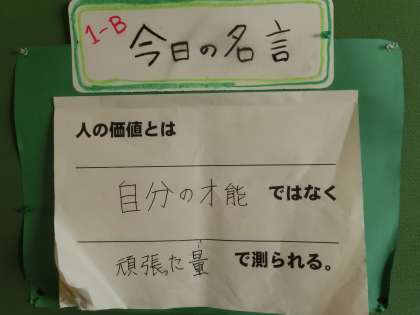 1-B
今日の名言
人の価値とは
自分の才能 ではなく
頑張った量 で測られる。